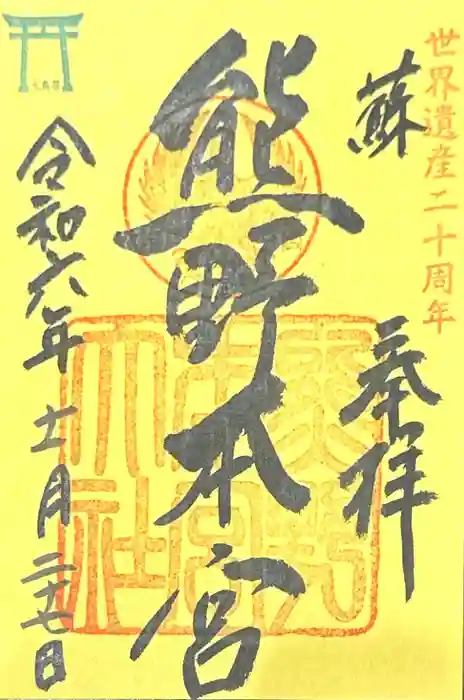 世界遺産二十周年
蘇
奉拝
熊野本宮
令和六年十一月二十七日
熊野本宮大社
大鳥居